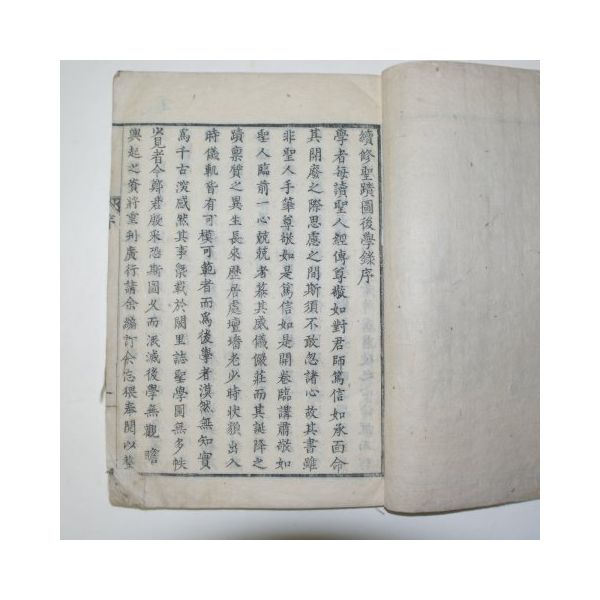 續修聖蹟圖後學錄序
學者每讀聖人經傳尊敬如對君師篤信如承面命
其開廢之際思慮之間斯須不敢忽諸心故其書雖
非聖人手筆尊敬如是篤信如是開卷臨講肅敬如
聖人臨前一心兢兢者慕其威儀儼莊而其誕降之
蹟稟質之異生長來歷居處壇墻老少時狀貌出入
時儀軌皆有可模可範者而爲後學者漠然無知實
爲千古深感然其事槩載於闕里誌聖學圖無多帙
覽者今鄭君 來恐斯圖久而泯滅後學無觀瞻
興起之資將重刊廣行請余編訂余忘猥奉閱以
序